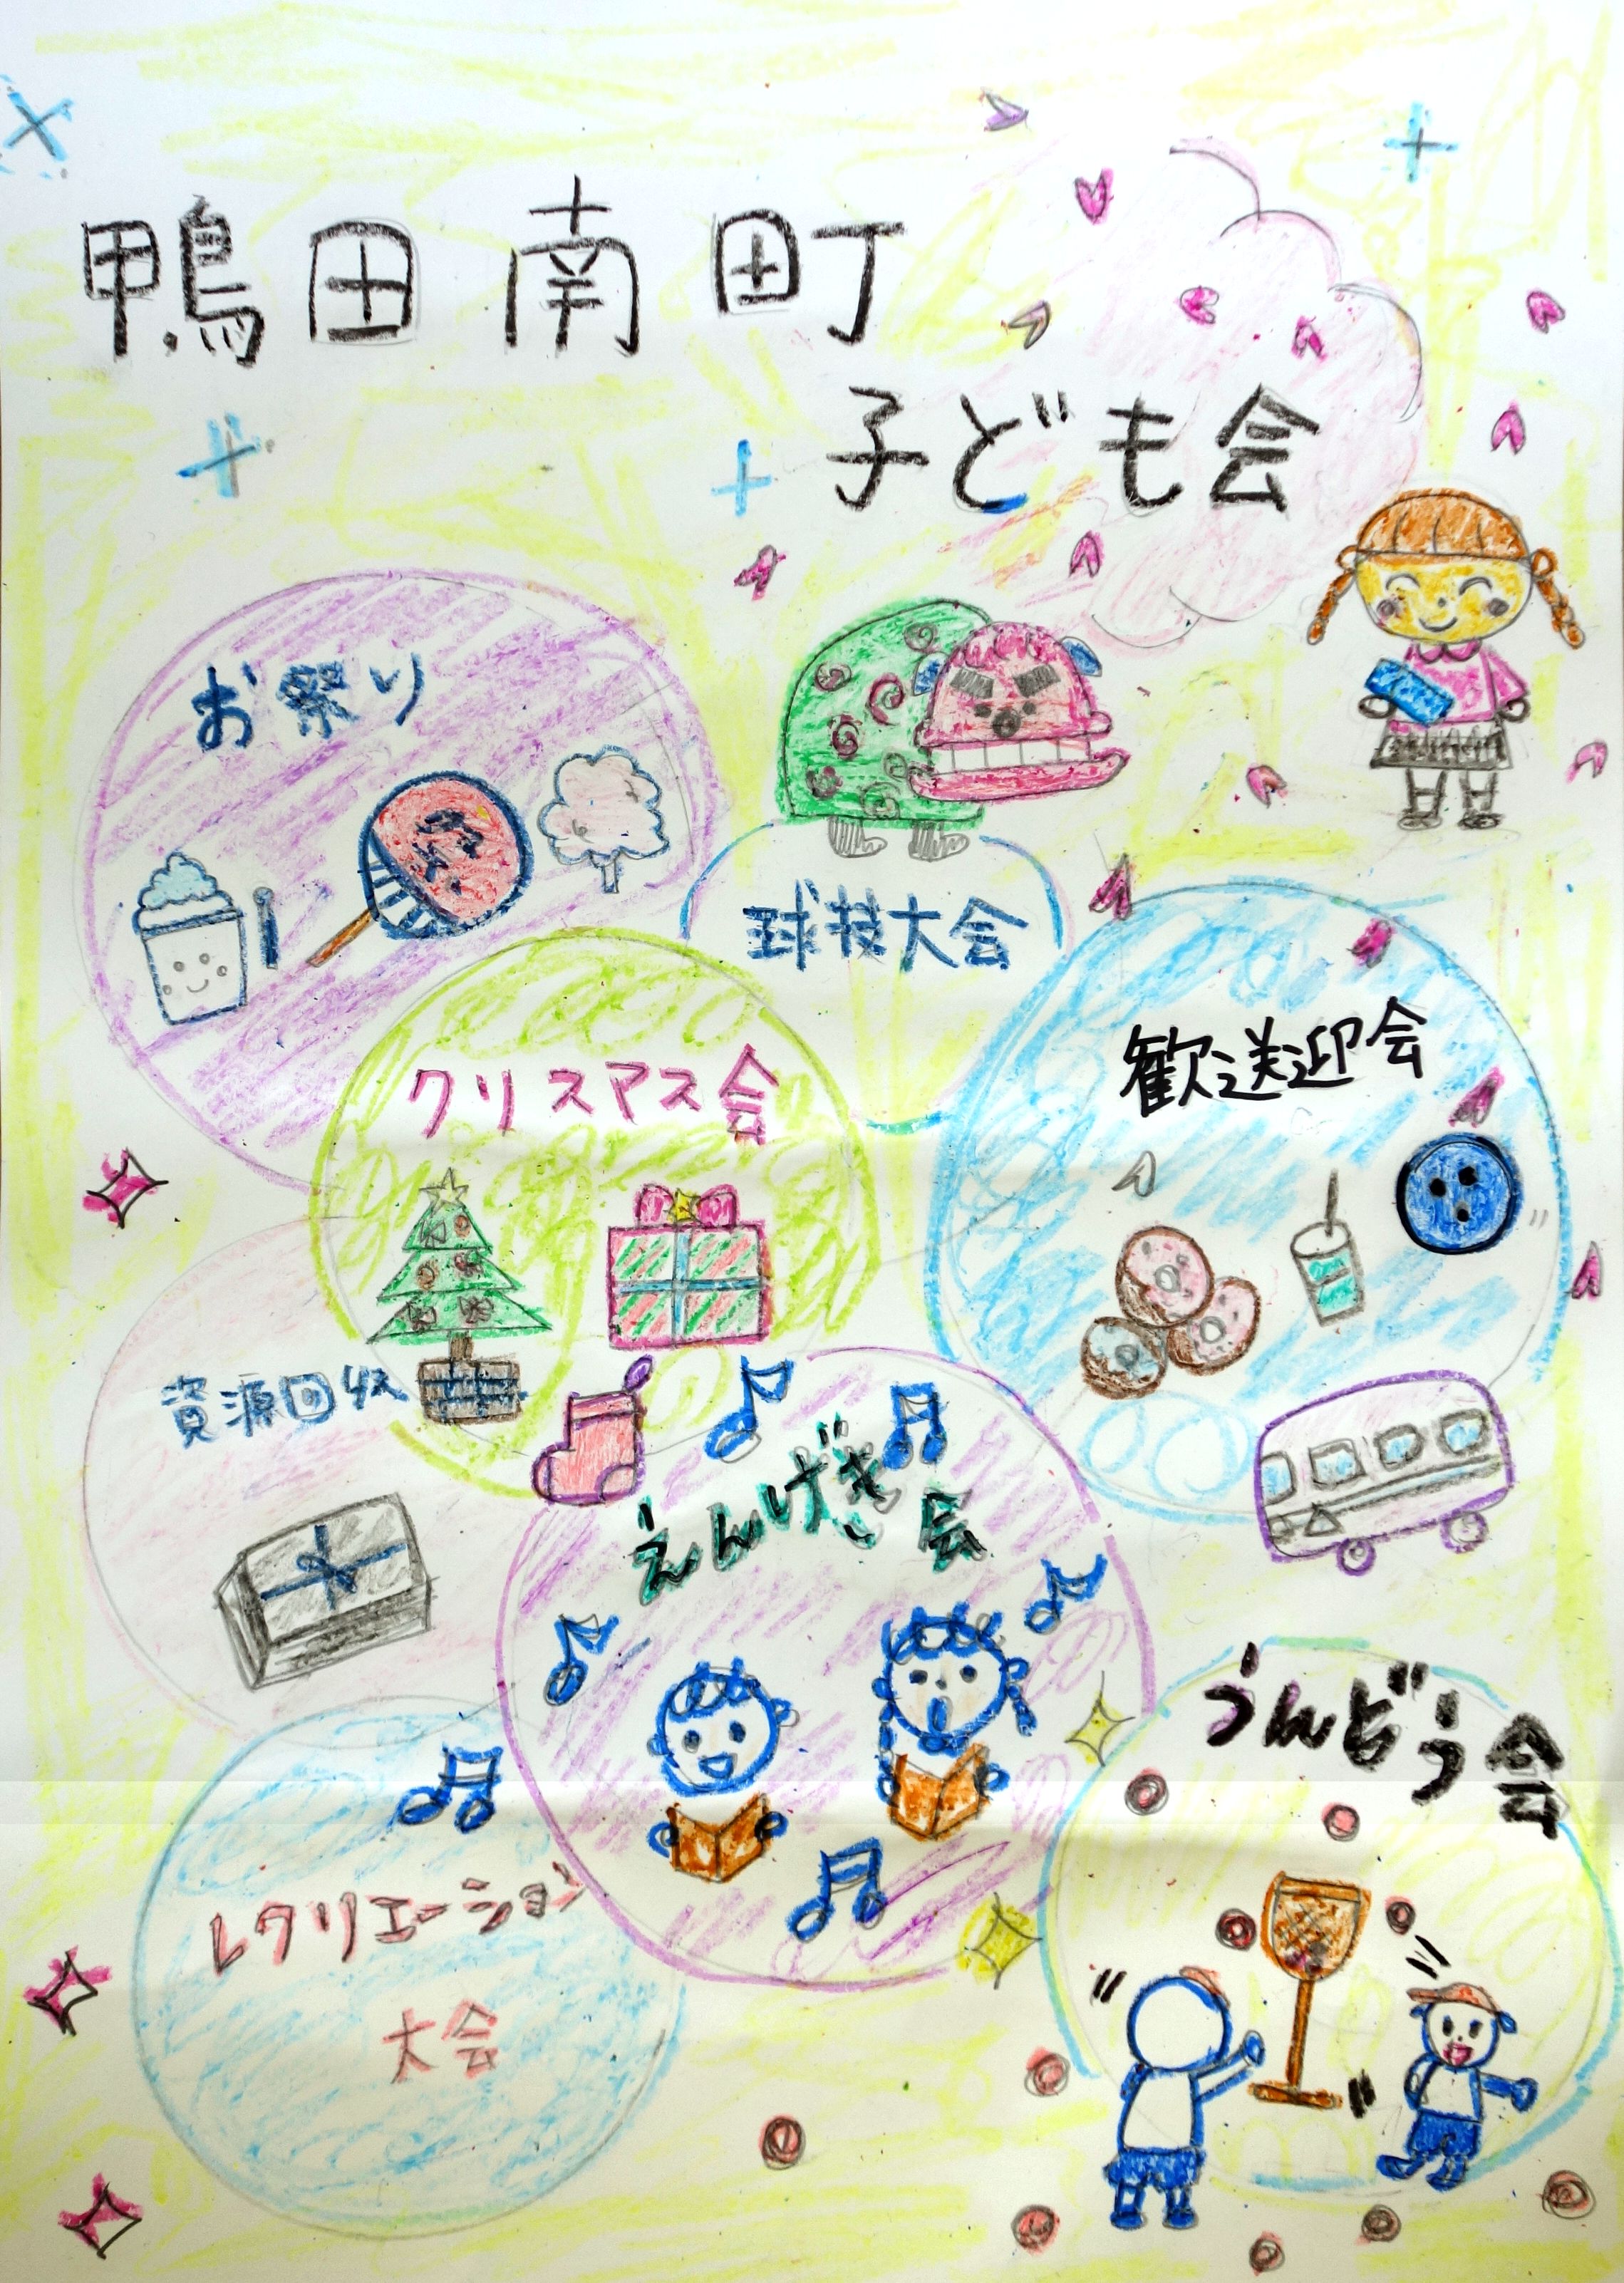 鴨田南町
子ども会
お祭り
祭
球技大会
歓送迎会
クリスマス会
資源回収
えんげき会
うんどう会
レクリエーション
大会